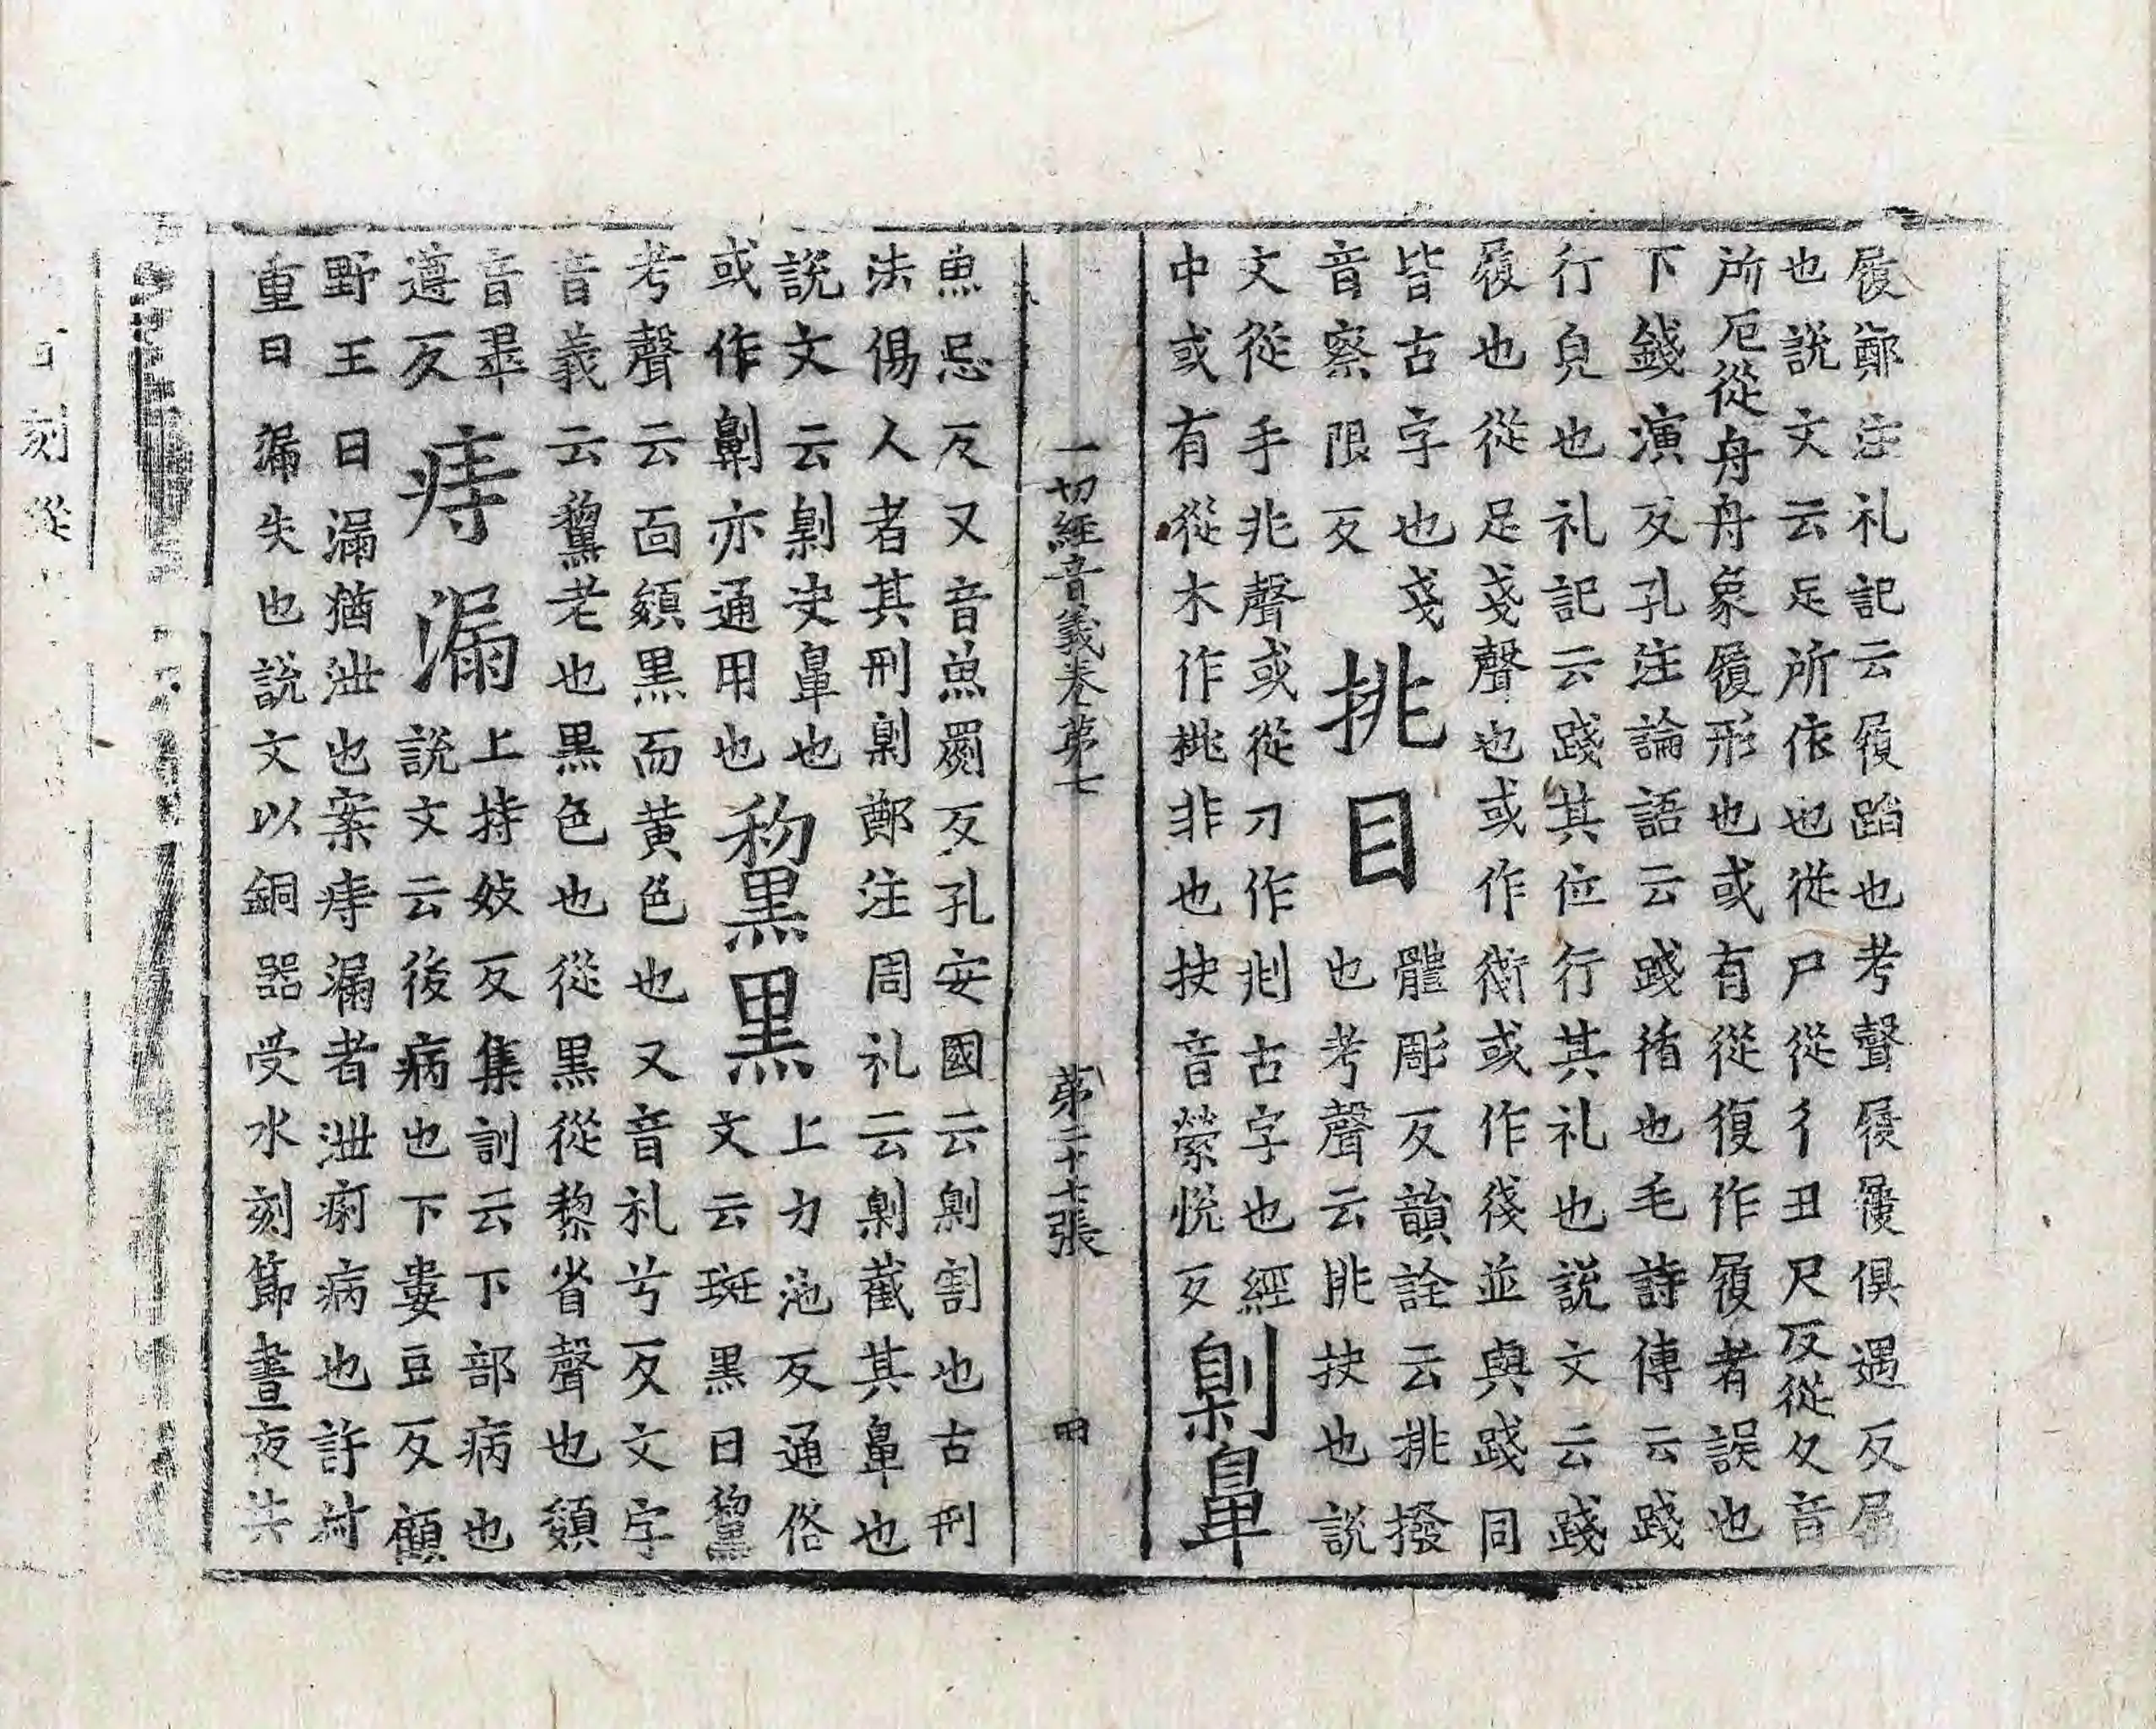 屐鄭注礼記云履蹈也考聲屐屨俱遇反屬
也說文云足所依也從尸從彳丑尺反從夂音
所厄從舟舟象履形也或有從復作履者誤也
下錢演反孔注論語云踐循也毛詩傳云踐
行皃也礼記云踐其位行其礼也說文云踐
履也從足戔聲也或作衠或作俴並與踐同
皆古字也戔
音察限反
挑目
體彫反韻詮云挑撥
也考聲云挑抉也說
文從手兆聲或從刀作剕古字也經
中或有從木作桃非也抉音縈悦反
劓鼻
魚忌反又音魚罽反孔安國云劓割也古刑
法傷人者其刑劓鄭注周礼云劓截其鼻也
說文云劓决鼻也
或作劓亦通用也
黧黑
上力池反通俗
文云斑黑曰黧
考聲云面纇黒而黄色也又音礼兮反文字
音義云黧老也黒色也從黒從黎省聲也纇
音辠
遵反
痔漏
上持妓反集訓云下部病也
說文云後病也下婁豆反顧
野王曰漏猶泄也案痔漏者泄痢病也許叔
重曰漏失也說文以銅器受水刻節晝夜共
一切經音義卷第七
第二十七張
百刻從